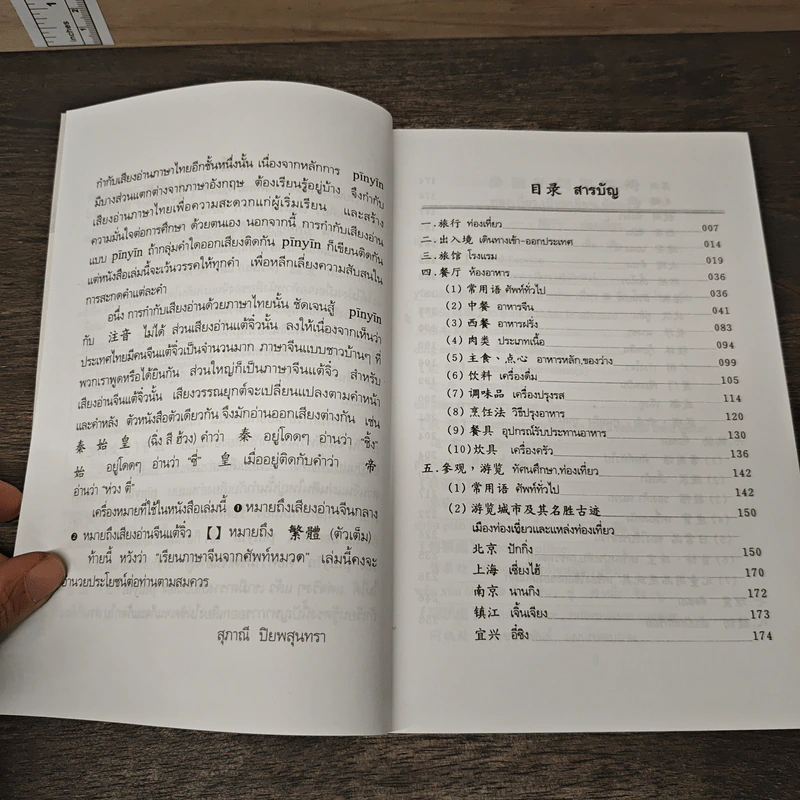 inches
1
2
กำกับเสียงอ่านภาษาไทยอีกชั้นหนึ่งนั้น เนื่องจากหลักการ pīnyīn
มีบางส่วนแตกต่างจากภาษาอังกฤษ ต้องเรียนรู้อยู่บ้าง จึงกำกับ
เสียงอ่านภาษาไทยเพื่อความสะดวกแก่ผู้เริ่มเรียน และสร้าง
ความมั่นใจต่อการศึกษา ด้วยตนเอง นอกจากนี้ การกำกับเสียงอ่าน
แบบ pīnyīn ถ้ากลุ่มคำใดออกเสียงติดกัน pīnyīn ก็เขียนติดกัน
แต่หนังสือเล่มนี้จะเว้นวรรคให้ทุกคำ เพื่อหลีกเลี่ยงความสับสนใน
การสะกดคำแต่ละคำ
อนึ่ง การกำกับเสียงอ่านด้วยภาษาไทยนั้น ชัดเจนสู้ pīnyīn
กับ 注音 ไม่ได้ ส่วนเสียงอ่านแต้จิ๋วนั้น ลงให้เนื่องจากเห็นว่า
ประเทศไทยมีคนจีนแต้จิ๋วเป็นจำนวนมาก ภาษาจีนแบบชาวบ้านๆ ที่
พวกเราพูดหรือได้ยินกัน ส่วนใหญ่ก็เป็นภาษาจีนแต้จิ๋ว สำหรับ
เสียงอ่านจีนแต้จิ๋วนั้น เสียงวรรณยุกต์จะเปลี่ยนแปลงตามคำหน้า
และคำหลัง ตัวหนังสือตัวเดียวกัน จึงมักอ่านออกเสียงต่างกัน เช่น
秦 始 皇 (ฉิ่ง สี ฮ้วง) คำว่า 秦 อยู่โดดๆ อ่านว่า "ชิ้ง"
始 อยู่โดดๆ อ่านว่า "ซี่" 皇 เมื่ออยู่ติดกับคำว่า 帝
อ่านว่า "ห่วง ตี่"
เครื่องหมายที่ใช้ในหนังสือเล่มนี้ ❶ หมายถึงเสียงอ่านจีนกลาง
❷ หมายถึงเสียงอ่านจีนแต้จิ๋ว 【 】 หมายถึง 繁體 (ตัวเต็ม)
ท้ายนี้ หวังว่า "เรียนภาษาจีนจากศัพท์หมวด" เล่มนี้คงจะ
อำนวยประโยชน์ต่อท่านตามสมควร
สุภาณี ปิยพสุนทรา
目录 สารบัญ
一.旅行 ท่องเที่ยว 007
二.出入境 เดินทางเข้า-ออกประเทศ 014
三.旅馆 โรงแรม 019
四.餐厅 ห้องอาหาร 036
(1) 常用语 ศัพท์ทั่วไป 036
(2) 中餐 อาหารจีน 041
(3) 西餐 อาหารฝรั่ง 083
(4) 肉类 ประเภทเนื้อ 094
(5) 主食、点心 อาหารหลัก,ของว่าง 099
(6) 饮料 เครื่องดื่ม 105
(7) 调味品 เครื่องปรุงรส 114
(8) 烹饪法 วิธีปรุงอาหาร 120
(9) 餐具 อุปกรณ์รับประทานอาหาร 130
(10) 炊具 เครื่องครัว 136
五.参观，游览 ทัศนศึกษา,ท่องเที่ยว 142
(1) 常用语 ศัพท์ทั่วไป 142
(2) 游览城市及其名胜古迹 150
เมืองท่องเที่ยวและแหล่งท่องเที่ยว
北京 ปักกิ่ง 150
上海 เซี่ยงไฮ้ 170
南京 นานกิง 172
镇江 เจิ้นเจียง 173
宜兴 อี๋ซิง 174